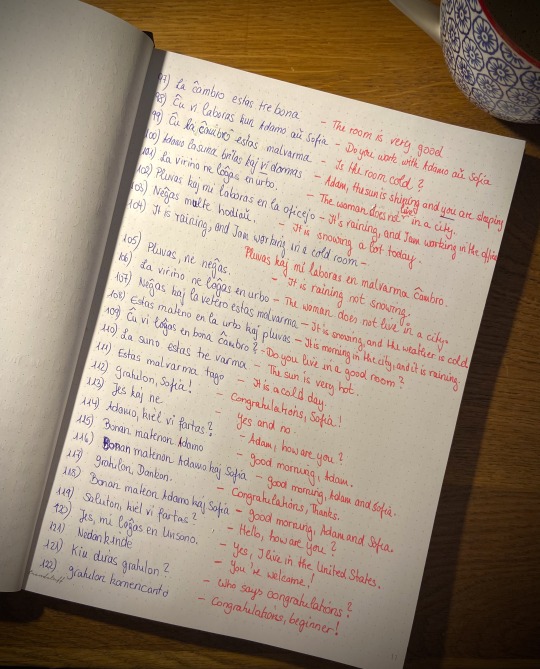 97) La ĉambro estas tre bona - The room is very good
98) Ĉu vi laboras kun Adamo aŭ Sofia - Do you work with Adamo aŭ Sofia
99) Ĉu la ĉambro estas malvarma - Is the room cold?
100) Adamo la suno brilas kaj vi dormas - Adam, the sun is shining and you are sleeping
101) La virino ne loĝas en urbo. - The woman does not live in a city.
102) Pluvas kaj mi laboras en la oficejo - It's raining, and I am working in the office
103) Neĝas multe hodiaŭ. - It is snowing a lot today.
104) It is raining, and I am working in a cold room - Pluvas kaj mi laboras en malvarma ĉambro.
105) Pluvas, ne neĝas. - It is raining not snowing.
106) La virino ne loĝas en urbo - The woman does not live in a city.
107) Neĝas kaj la vetero estas malvarma - It is snowing, and the weather is cold
108) Estas mateno en la urbo kaj pluvas - It is morning in the city, and it is raining.
109) Ĉu vi loĝas en bona ĉambro? - Do you live in a good room?
110) La suno estas tre varma - The sun is very hot.
111) Estas malvarma tago - It is a cold day.
112) Gratulon, Sofia! - Congratulations, Sofia!
113) Jes kaj ne - Yes and no.
114) Adamo, kiel vi fartas? - Adam, how are you?
115) Bonan matenon Adamo - good morning, Adam.
116) Bonan matenon Adamo kaj Sofia - good morning, Adam and Sofia.
117) gratulon, Dankon. - Congratulations, Thanks.
118) Bonan mateon Adamo kaj Sofia - good morning, Adam and Sofia.
119) Saluton, kiel vi fartas? - Hello, how are you?
120) Jes, mi loĝas en Usono. - Yes, I live in the United States.
121) Nedankinde - You're welcome!
121) Kiu diras gratulon? - Who says congratulations?
122) gratulon komencanto - Congratulations, beginner!